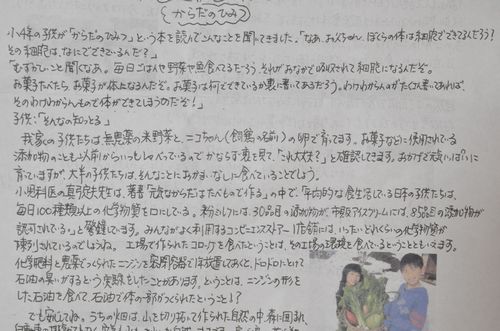 からだのひみつ
小4年の子供が「からだのひみつ」という本を読んでこんなことを聞いてきました。「なあ、お父ちゃん、ぼくらの体は細胞でできてるんだろう?
その細胞は、なにでできているんだ?」
「むずかしいこと聞くなあ。毎日ごはんや野菜や魚食べてるだろう。それがおなかで吸収されて細胞になるんだぞ。
お菓子たべたら、お菓子が体となるんだぞ。お菓子は何でできているか裏に書いてあるだろう。わけわからんのがたくさん書いてあれば、
そのわけわからんもので体ができてしまうのだぞ!」
子供:「そんなの知っとる」
我家の子供たちは無農薬の米野菜と、ニコちゃん(飼鶏の名前)の卵で育ってます。お菓子などに使用されている
添加物のことも いつも しゃべっているので かならず裏を見て、「これ大丈夫?」と確認してきます。おかげで
育っていますが、大半の子供たちは、そんなことにおかまいなしに食べていることでしょう。
小児科医の真弓定夫先生は、著書「元気ながらだはたべもので作る」の中で、「平均的な食生活している日本の子供たちは、
毎日100種類以上の化学物質を口にしている。粉ミルクには、30品目の添加物が、市販アイスクリームには、85品目の添加物が
認可されている。」と警鐘しています。みんながよく利用するコンビニエンスストアー1店舗には、いったいどれくらいの化学物質が
陳列されているのでしょうね。工場で作られたコロッケを食べたということは、その工場の環境を食べているということともいえます。
化学肥料と農薬でつくられたニンジンを密閉容器で1年放置しておくと、ドロドロにとけて
石油の臭いがするという実験をしたことがあります。ということは、ニンジンの形を
した石油を食べて、石油で体の一部がつくられたということ!?
でも安心てね。うちの畑は、山を切り拓いて作られた自然の中、森に囲まれ